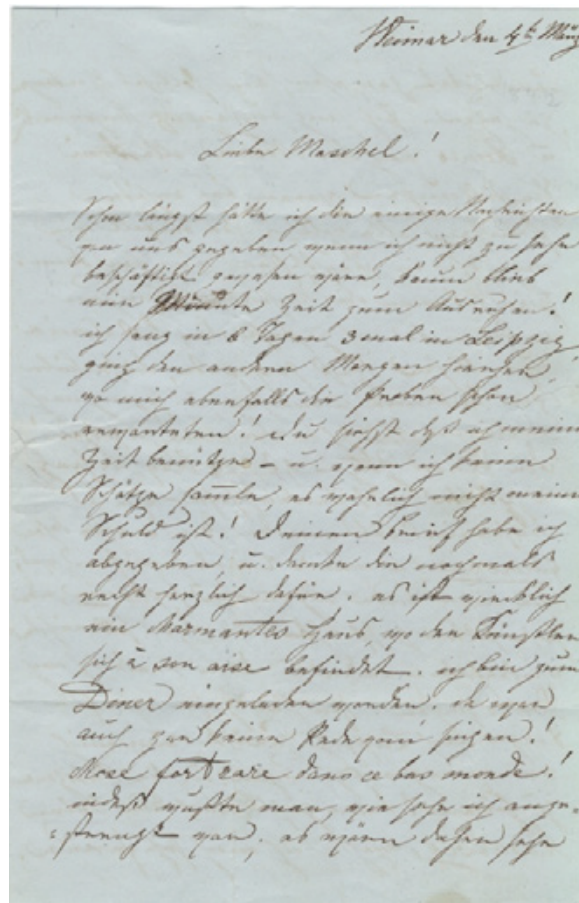 Weimar den 4t März
Liebe Maschel!
Schon längst hätte ich dir einige Nachrichten
von uns gegeben wenn ich nicht zu sehr
beschäftigt gewesen wäre, kaum blieb
mir Minute Zeit zum Ausruhen!
ich sang in 8 Tagen 3 mal in Leipzig
ging den andern Morgen hierher,
wo mich ebenfalls die Proben schon
erwarteten! du siehst daß ich meine
Zeit benütze – u. wenn ich keine
Schätze sammle, es wahrlich nicht meine
Schuld ist! Deinen Brief habe ich
abgegeben, u. danke dir nochmals
recht herzlich dafür. es ist wirklich
ein charmantes Haus, wo der Künstler
sich à son aise befindet. ich bin zum
Diner eingeladen worden. da war
auch gar keine Rede vom singen!
chose fort rare dans ce bas monde!
indeß wußte man, wie sehr ich ange-
strengt war, es wäre daher sehr